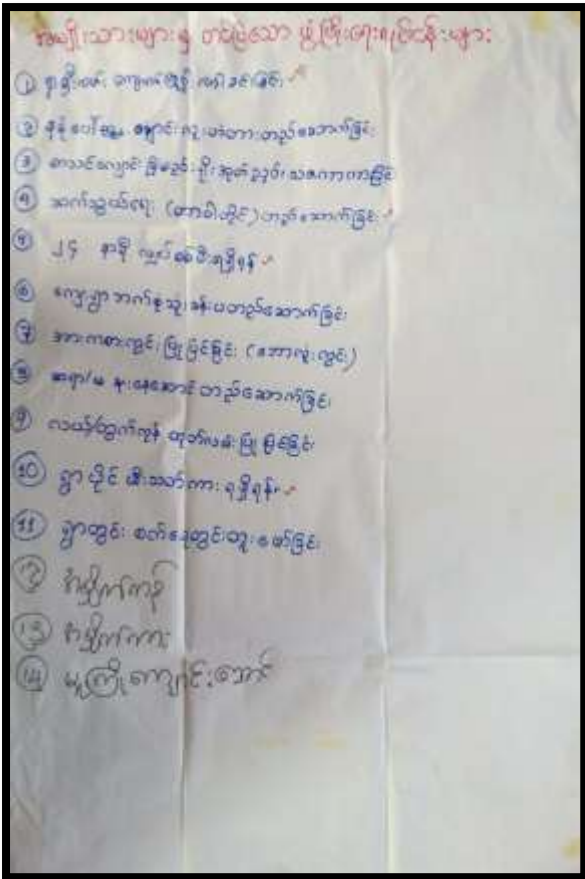 အမျိုးသားများမှ တင်ပြသော ဖွံ့ဖြိုးရေးလုပ်ငန်းများ
① ရွာရိုးလမ်း ကျောက်ဖြန့် လမ်းခင်းခြင်း
② လူးတံတားတည်ဆောက်ခြင်း
③ စာသင်ကျောင်း ခြံစည်းရိုး အုတ်
④ ဆက်သွယ်ရေး (တာဝါတိုင်) တည်ဆောက်ခြင်း
⑤ ၂၄ နာရီ လျှပ်စစ်မီးရရှိရန်
⑥ ကျေးရွာဘက်စုံသုံးခန်းမတည်ဆောက်ခြင်း
⑦ အားကစားကွင်း ပြုပြင်ခြင်း (ဘောလုံးကွင်း)
⑧ ဆရာ/မ နားနေဆောင် တည်ဆောက်ခြင်း
⑨ လယ်ထွက်ကုန် ထုတ်လမ်း ပြုပြင်ခြင်း
⑩ ရွာပိုင် မီးသတ်ကား ရရှိရန်
⑪ ရွာတွင်း စက်ရေတွင်းတူးဖော်ခြင်း
⑫ အမှိုက်ကန်
⑬ အမှိုက်ကား
⑭ မူကြိုကျောင်းဆောင်